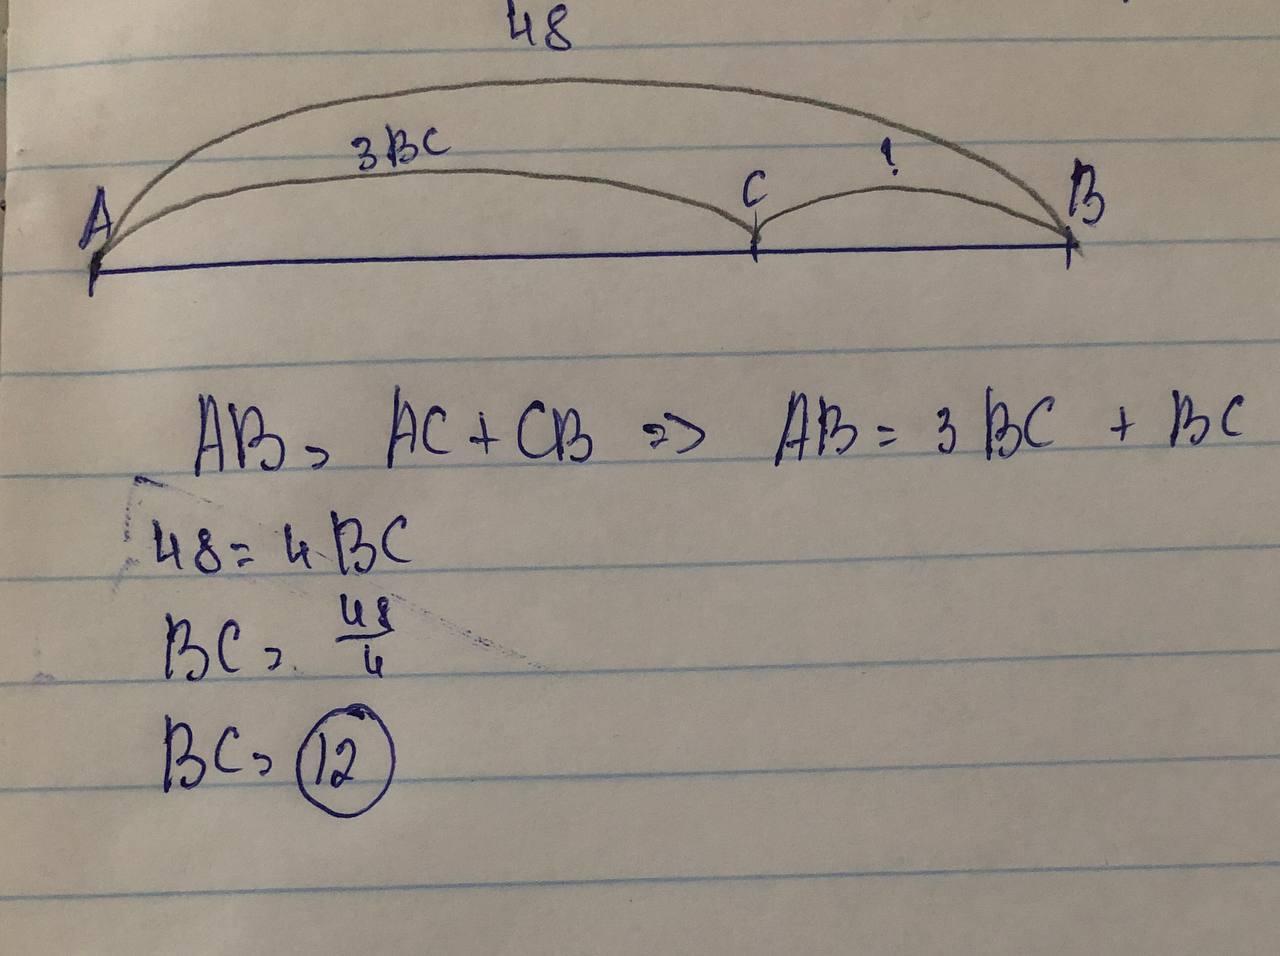 48
3BC
?
A
C
B
AB = AC + CB => AB = 3 BC + BC
48 = 4 BC
BC = 48/4
BC = 12